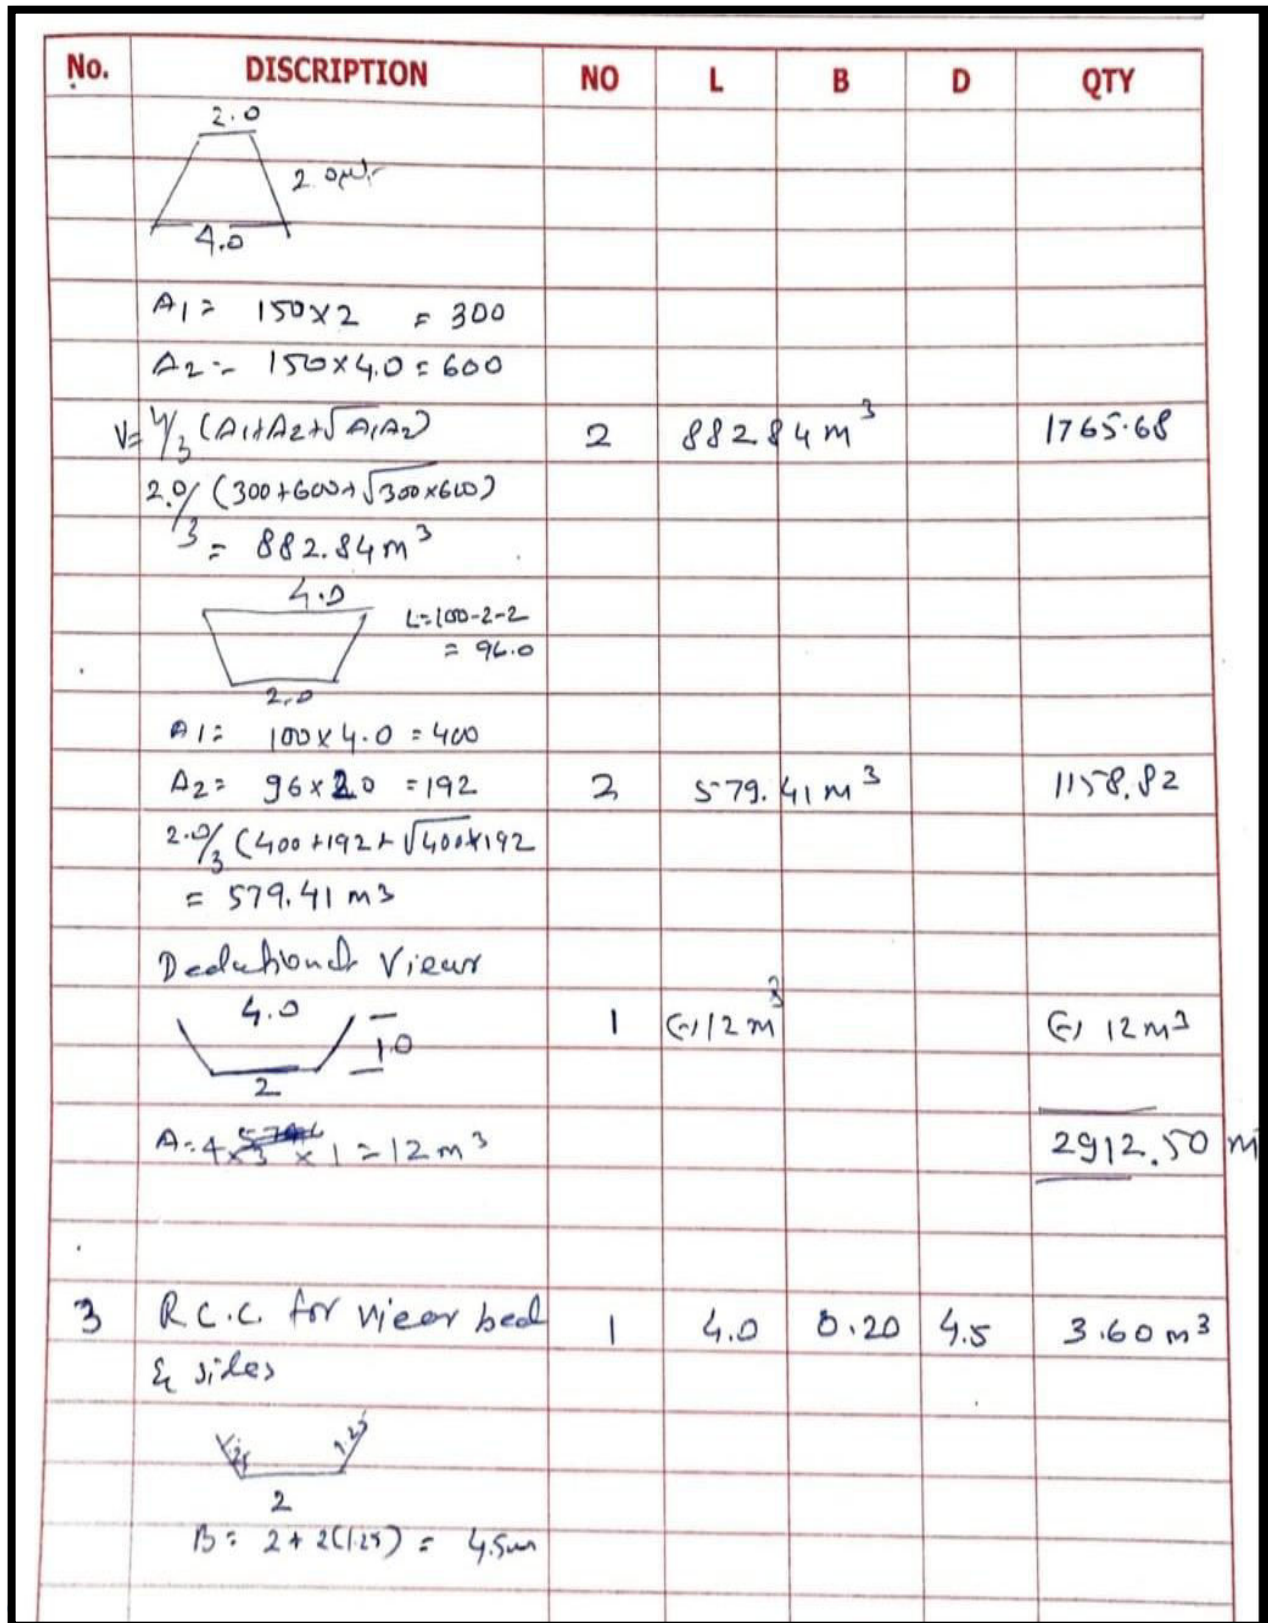 No. DISCRIPTION NO L B D QTY
2.0
2.0
4.0
A1 = 150×2 = 300
A2 = 150×4.0 = 600
V= h/3 (A1+A2+√A1A2) 2 882.84 m³ 1765.68
2.0/3 (300+600+√300×600)
= 882.84 m³
4.0
L=100-2-2
= 96.0
2.0
A1= 100×4.0 = 400
A2= 96×2.0 = 192 2 579.41 m³ 1158.82
2.0/3 (400+192+√400×192
= 579.41 m3
Viear
4.0
1 (-) 12 m³ (-) 12 m³
1.0
2
A=4×3×1 = 12 m³ 2912.50 m
3 R.C.C. for viear bed 1 4.0 0.20 4.5 3.60 m³
& sides
1.25 1.25
2
B= 2+2(1.25) = 4.5m